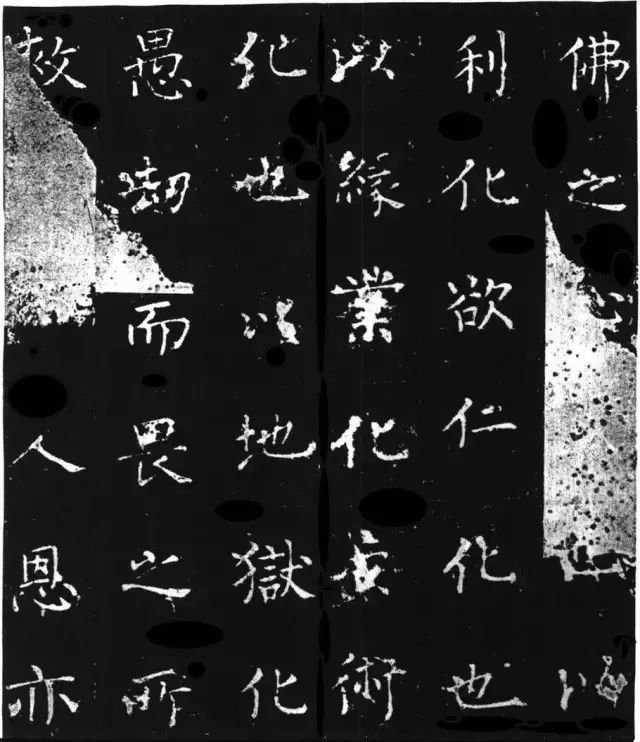 佛之心
利化欲仁化也
以緣業化妄術
化也以地獄化
愚劫而畏之所
故人恩亦